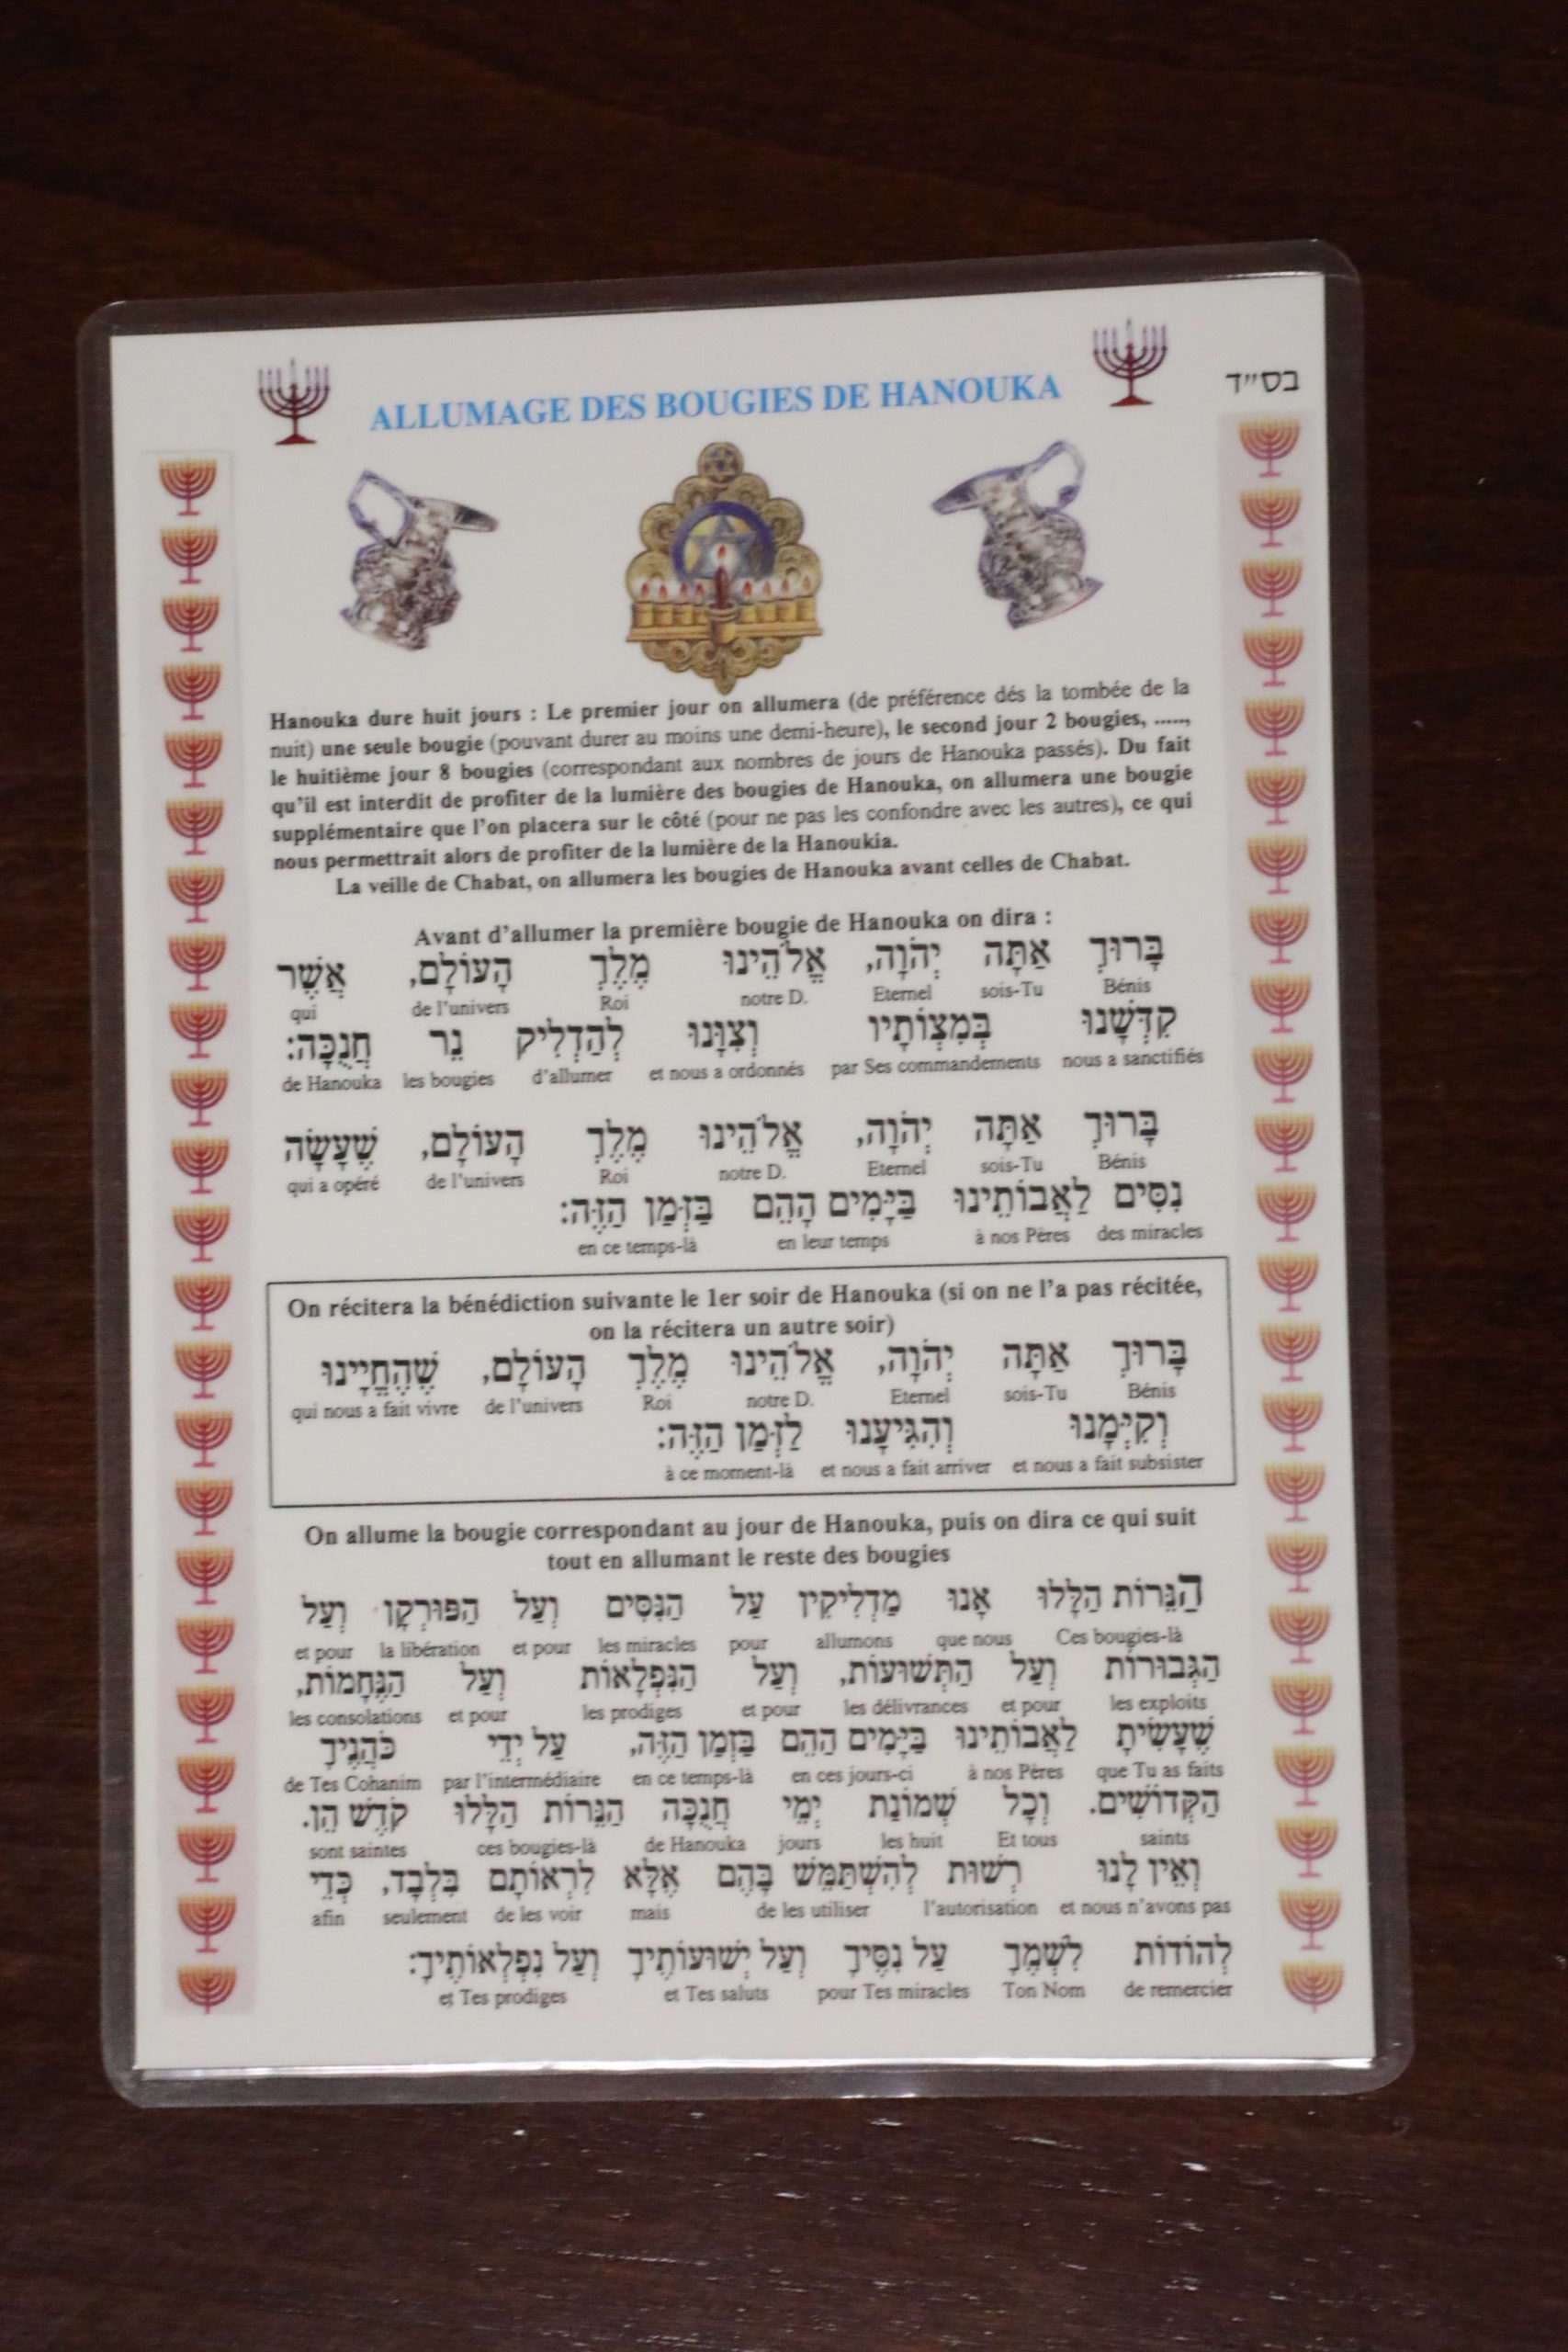 בס״ד
ALLUMAGE DES BOUGIES DE HANOUKA
Hanouka dure huit jours : Le premier jour on allumera (de préférence dés la tombée de la
nuit) une seule bougie (pouvant durer au moins une demi-heure), le second jour 2 bougies, .....,
le huitième jour 8 bougies (correspondant aux nombres de jours de Hanouka passés). Du fait
qu'il est interdit de profiter de la lumière des bougies de Hanouka, on allumera une bougie
supplémentaire que l'on placera sur le côté (pour ne pas les confondre avec les autres), ce qui
nous permettrait alors de profiter de la lumière de la Hanoukia.
La veille de Chabat, on allumera les bougies de Hanouka avant celles de Chabat.
Avant d'allumer la première bougie de Hanouka on dira :
בָּרוּךְ אַתָּה יְהֹוָה, אֱלֹהֵינוּ מֶלֶךְ הָעוֹלָם, אֲשֶׁר
qui de l'univers Roi notre D. Eternel sois-Tu Bénis
קִדְּשָׁנוּ בְּמִצְוֹתָיו וְצִוָּנוּ לְהַדְלִיק נֵר חֲנֻכָּה:
de Hanouka les bougies d'allumer et nous a ordonnés par Ses commandements nous a sanctifiés
בָּרוּךְ אַתָּה יְהֹוָה, אֱלֹהֵינוּ מֶלֶךְ הָעוֹלָם, שֶׁעָשָׂה
qui a opéré de l'univers Roi notre D. Eternel sois-Tu Bénis
נִסִּים לַאֲבוֹתֵינוּ בַּיָּמִים הָהֵם בַּזְּמַן הַזֶּה:
en ce temps-là en leur temps à nos Pères des miracles
On récitera la bénédiction suivante le 1er soir de Hanouka (si on ne l'a pas récitée,
on la récitera un autre soir)
בָּרוּךְ אַתָּה יְהֹוָה, אֱלֹהֵינוּ מֶלֶךְ הָעוֹלָם, שֶׁהֶחֱיָינוּ
qui nous a fait vivre de l'univers Roi notre D. Eternel sois-Tu Bénis
וְקִיְּמָנוּ וְהִגִּיעָנוּ לַזְּמַן הַזֶּה:
à ce moment-là et nous a fait arriver et nous a fait subsister
On allume la bougie correspondant au jour de Hanouka, puis on dira ce qui suit
tout en allumant le reste des bougies
הַנֵּרוֹת הַלָּלוּ אָנוּ מַדְלִיקִין עַל הַנִּסִּים וְעַל הַפּוּרְקָן וְעַל
et pour la libération et pour les miracles pour allumons que nous Ces bougies-là
הַגְּבוּרוֹת וְעַל הַתְּשׁוּעוֹת, וְעַל הַנִּפְלָאוֹת וְעַל הַנֶּחָמוֹת,
les consolations et pour les prodiges et pour les délivrances et pour les exploits
שֶׁעָשִׂיתָ לַאֲבוֹתֵינוּ בַּיָּמִים הַהֵם בַּזְּמַן הַזֶּה, עַל יְדֵי כֹּהֲנֶיךָ
de Tes Cohanim par l'intermédiaire en ce temps-là en ces jours-ci à nos Pères que Tu as faits
הַקְּדוֹשִׁים. וְכָל שְׁמוֹנַת יְמֵי חֲנֻכָּה הַנֵּרוֹת הַלָּלוּ קֹדֶשׁ הֵן.
sont saintes ces bougies-là de Hanouka jours les huit Et tous saints
וְאֵין לָנוּ רְשׁוּת לְהִשְׁתַּמֵּשׁ בָּהֶם אֶלָּא לִרְאוֹתָם בִּלְבָד, כְּדֵי
afin seulement de les voir mais de les utiliser l'autorisation et nous n'avons pas
לְהוֹדוֹת לִשְׁמֶךָ עַל נִסֶּיךָ וְעַל יְשׁוּעוֹתֶיךָ וְעַל נִפְלְאוֹתֶיךָ:
et Tes prodiges et Tes saluts pour Tes miracles Ton Nom de remercier